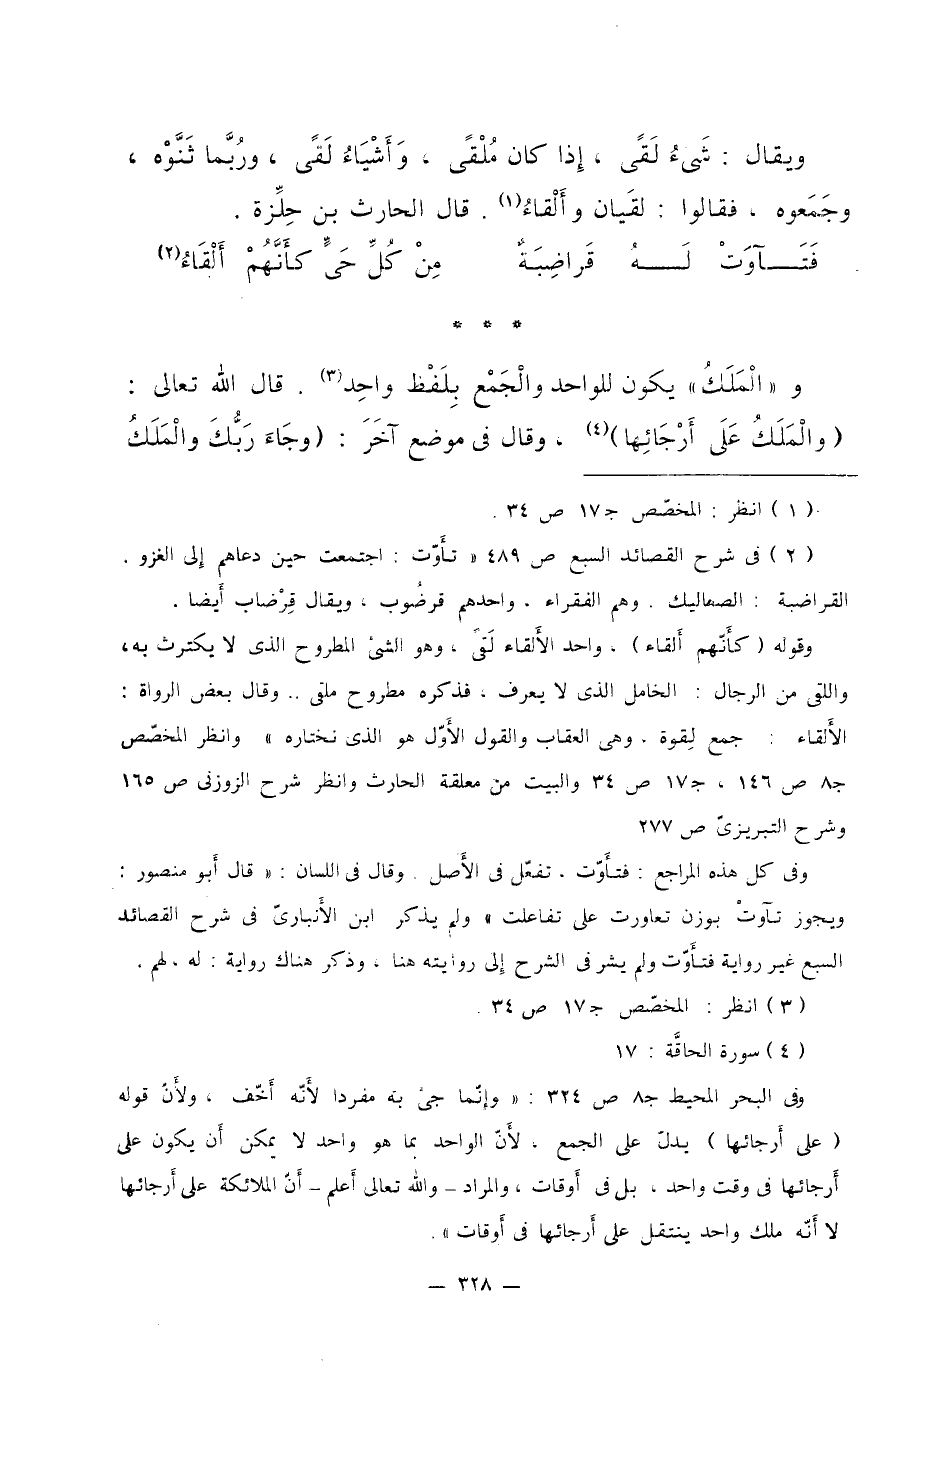 ويقال : شَىءُ لَقًى ، إذا كان مُلْقًى ، وَأَشْيَاءُ لَقًى ، ورُبَّما ثَنَّوْه ،
وجَمَعوه ، فقالوا : لقَيان وأَلْقاءُ(١) . قال الحارث بن حِلِّزة .
فَتَـــآوَتْ لَـــهُ قَراضِبَةٌ مِنْ كُلِّ حَىٍّ كأَنَّهُمْ أَلْقَاءُ(٢)
* * *
و « الْمَلَكُ » يكون للواحد والْجَمْع بِلَفْظ واحِد(٣) . قال الله تعالى :
( والْمَلَكُ عَلَى أَرْجَائِها )(٤) ، وقال فى موضع آخَرَ : ( وجَاءَ رَبُّكَ والْمَلَكُ
( ١ ) انظر : المخصّص ج١٧ ص ٣٤ .
( ٢ ) فى شرح القصائد السبع ص ٤٨٩ « تأَوّت : اجتمعت حين دعاهم إلى الغزو .
القراضبة : الصعاليك . وهم الفقراء . واحدهم قرضُوب ، ويقال قِرْضاب أيضا .
وقوله ( كأَنّهم ألقاء ) . واحد الألقاء لَقىً ، وهو الشئ المطروح الذى لا يكترث به،
واللقى من الرجال : الخامل الذى لا يعرف ، فذكره مطروح ملقى .. وقال بعض الرواة :
الألقاء : جمع لِقوة . وهى العقاب والقول الأوّل هو الذى نختاره » وانظر المخصّص
ج٨ ص ١٤٦ ، ج١٧ ص ٣٤ والبيت من معلقة الحارث وانظر شرح الزوزنى ص ١٦٥
وشرح التبريزىّ ص ٢٧٧
وفى كل هذه المراجع : فتأَوّت . تفعّل فى الأصل . وقال فى اللسان : « قال أبو منصور :
ويجوز تآوتْ بوزن تعاورت على تفاعلت » ولم يذكر ابن الأنبارىّ فى شرح القصائد
السبع غير رواية فتأوّت ولم يشر فى الشرح إلى روايته هنا ، وذكر هناك رواية : له ، لهم .
( ٣ ) انظر : المخصّص ج١٧ ص ٣٤ .
( ٤ ) سورة الحاقَّة : ١٧
وفى البحر المحيط ج٨ ص ٣٢٤ : « وإنّما جئ به مفردا لأنّه أخّف ، ولأنّ قوله
( على أرجائها ) يدلّ على الجمع ، لأنّ الواحد بما هو واحد لا يمكن أن يكون على
أرجائها فى وقت واحد ، بل فى أوقات ، والمراد – والله تعالى أعلم – أنّ الملائكة على أرجائها
لا أنّه ملك واحد ينتقل على أرجائها فى أوقات » .
— ٣٢٨ —